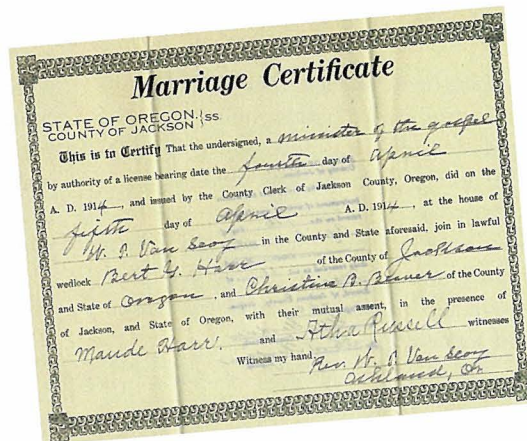 Marriage Certificate
STATE OF OREGON, } SS
COUNTY OF JACKSON
This is to Certify That the undersigned, a minister of the gospel
by authority of a license bearing date the fourth day of April
A. D. 1914, and issued by the County Clerk of Jackson County, Oregon, did on the
fifth day of April A. D. 1914, at the house of
W. J. Van Scoy in the County and State aforesaid, join in lawful
wedlock Bert G. Harr of the County of Jackson
and State of Oregon, and Christina B. Beaver of the County
of Jackson, and State of Oregon, with their mutual assent, in the presence of
Maude Harr. and Atha Russell witnesses
Witness my hand, Rev. W. J. Van Scoy
Ashland, Or